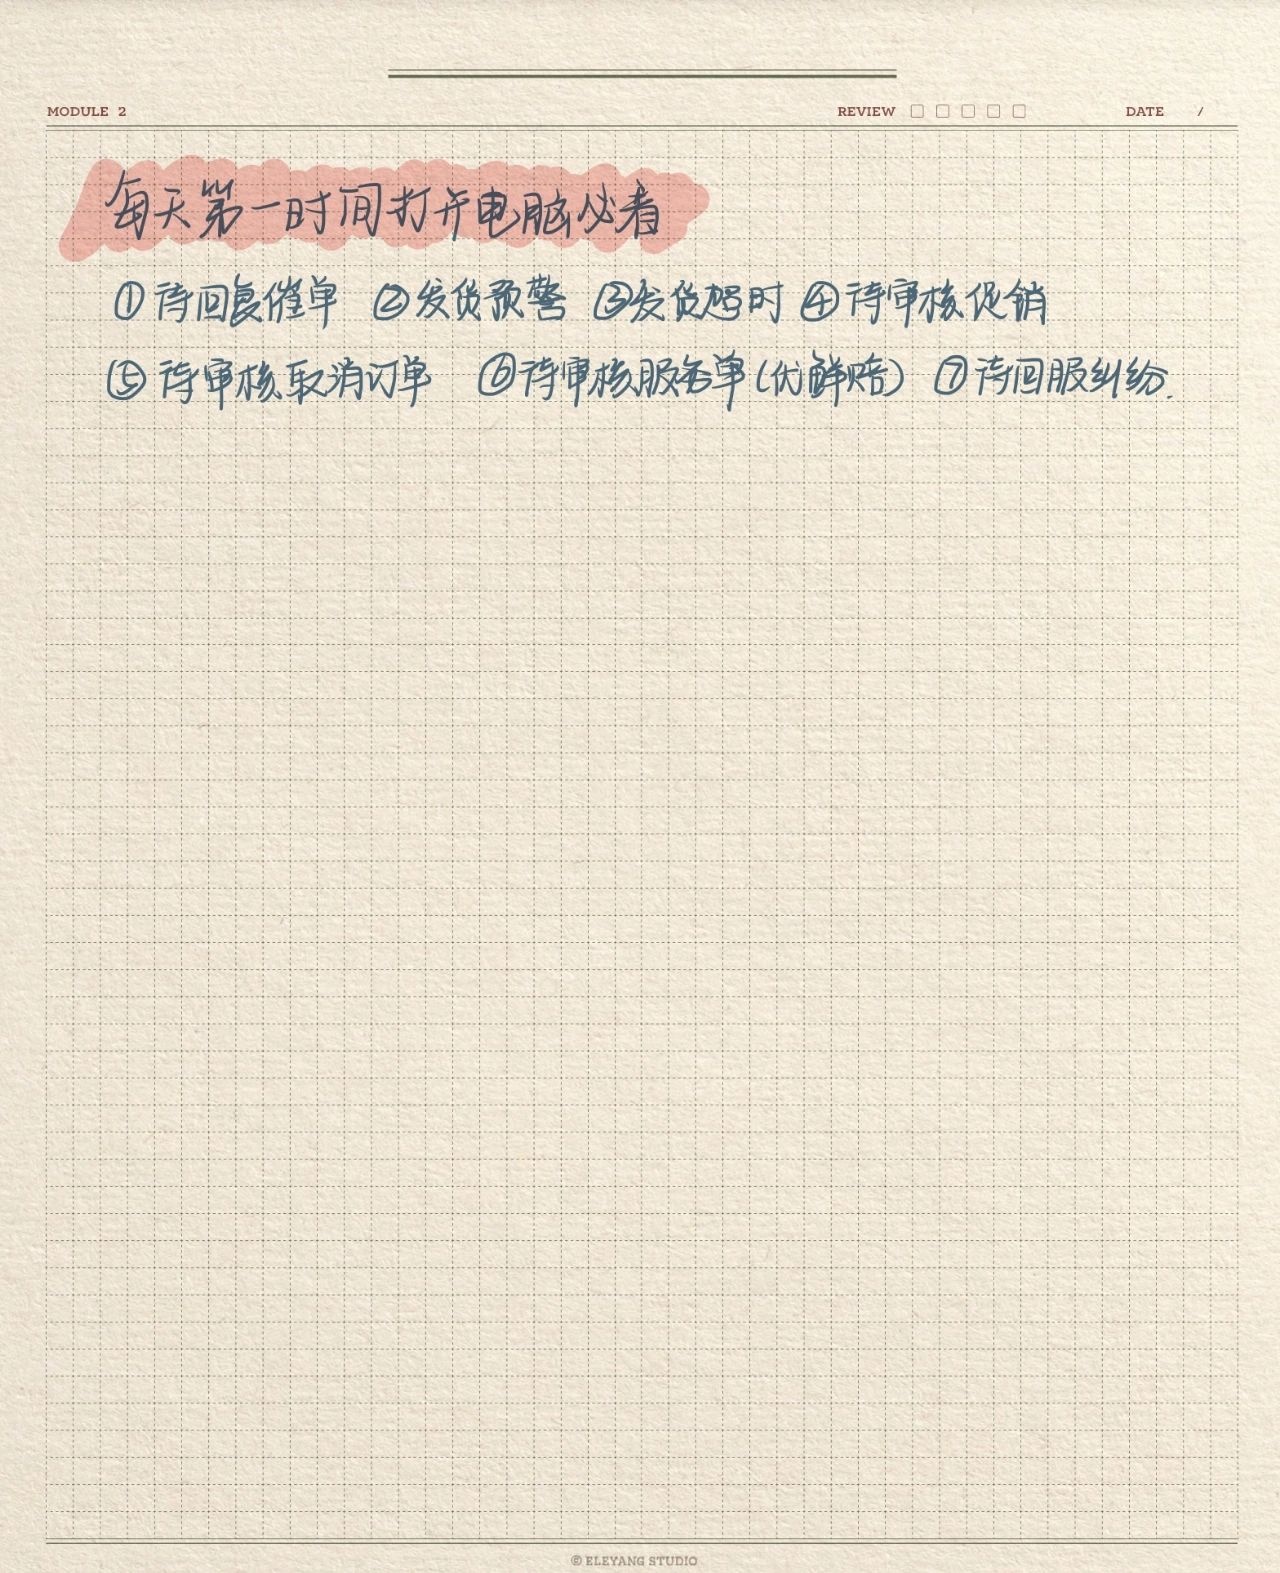 MODULE 2 REVIEW □ □ □ □ □ DATE /
每天第一时间打开电脑必看
①待回复催单 ②发货预警 ③发货超时 ④待审核促销
⑤待审核取消订单 ⑥待审核服务单(优鲜赔) ⑦待回服纠纷.
© ELEYANG STUDIO